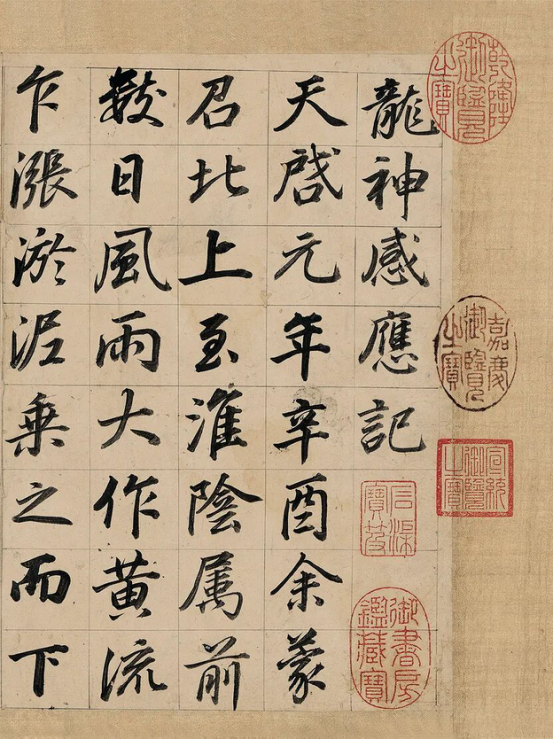 龍神感應記
天啓元年辛酉余蒙
召北上至淮陰属前
數日風雨大作黃流
乍漲淤泥乗之而下
乾隆御覽之寶
嘉慶御覽之寶
宣統御覽之寶
石渠寶笈
御書房鑑藏寶